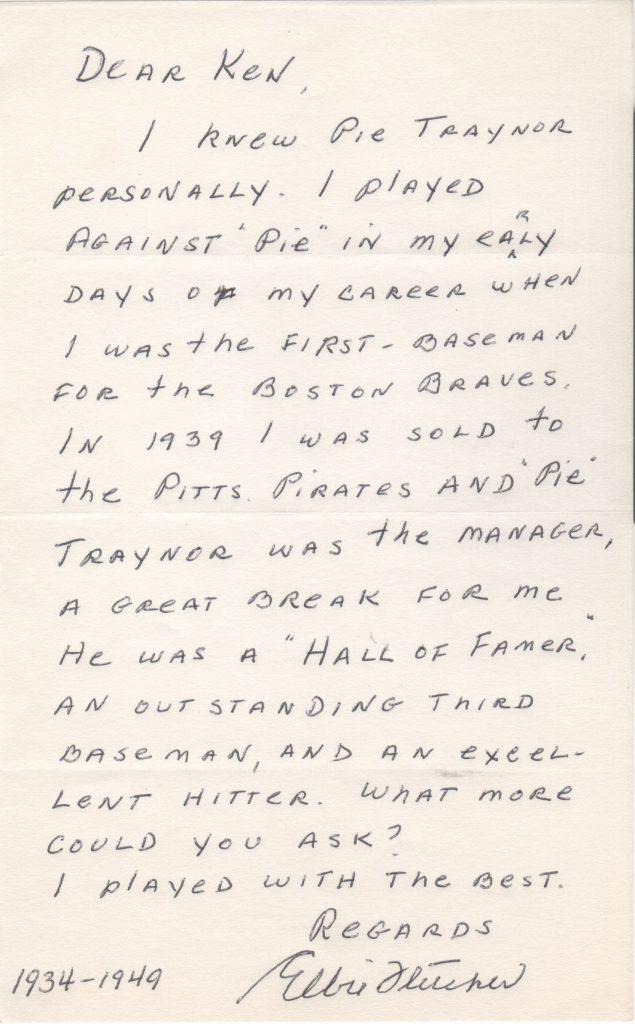 Dear Ken,
I knew Pie Traynor
personally. I played
against "Pie" in my early
days of my career when
I was the first-baseman
for the Boston Braves.
In 1939 I was sold to
the Pitts. Pirates and "Pie"
Traynor was the manager,
a great break for me
He was a "Hall of Famer,"
an outstanding third
baseman, and an excel-
lent hitter. What more
could you ask?
I played with the best.
Regards
1934-1949 Elbie Fletcher